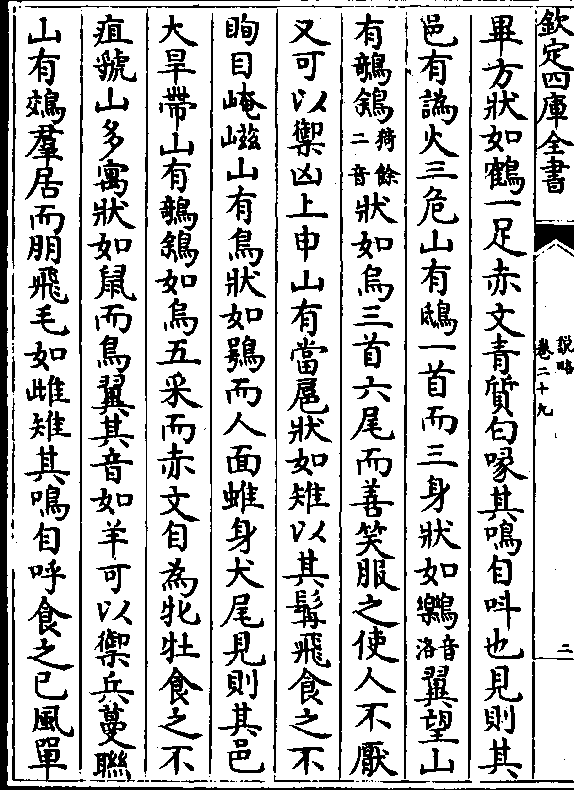 欽定四庫全書
說略
卷二十九
二
畢方狀如鶴一足赤文青質白喙其鳴自呌也見則其
邑有譌火三危山有鴟一首而三身狀如𪄀音洛翼望山
有鵸鵌猗餘二音狀如烏三首六尾而善笑服之使人不厭
又可以禦凶上申山有當扈狀如雉以其髯飛食之不
眴目崦嵫山有鳥狀如鴞而人面蜼身犬尾見則其邑
大旱帶山有鵸鵌如烏五采而赤文自為牝牡食之不
疽虢山多寓狀如鼠而鳥翼其音如羊可以禦兵蔓聯
山有鵁羣居而朋飛毛如雌雉其鳴自呼食之已風單